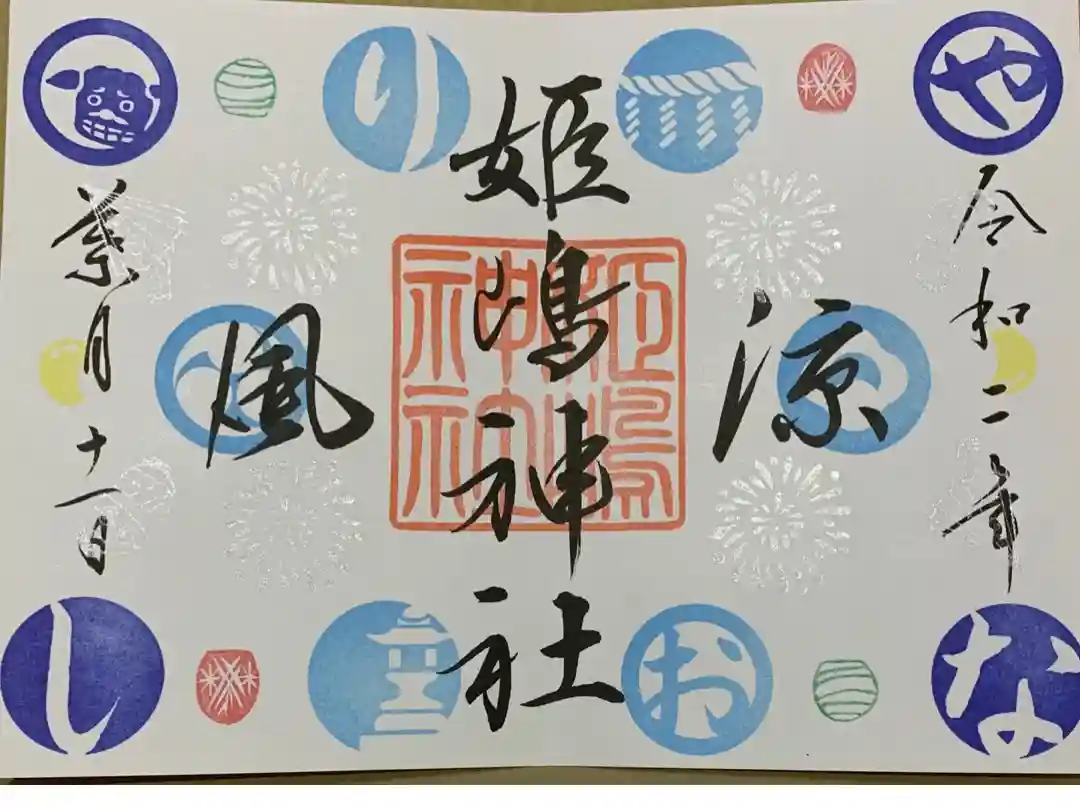 や
令和二年
な
涼
姫嶋神社
姫嶋神社
お
り
風
葉月十一日
し